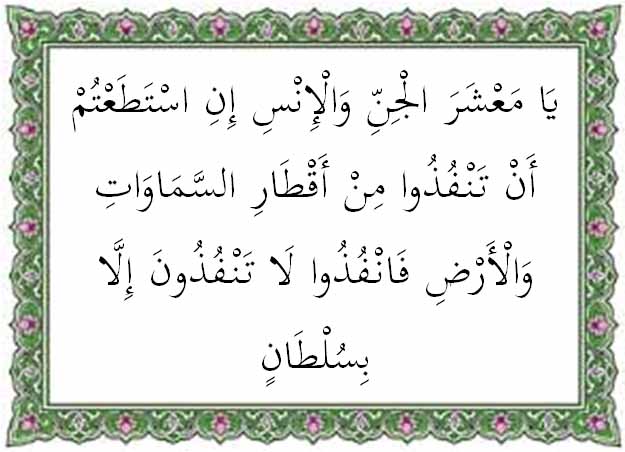 يَا مَعْشَرَ الْجِنِّ وَالْإِنْسِ إِنِ اسْتَطَعْتُمْ
أَنْ تَنْفُذُوا مِنْ أَقْطَارِ السَّمَاوَاتِ
وَالْأَرْضِ فَانْفُذُوا لَا تَنْفُذُونَ إِلَّا
بِسُلْطَانٍ